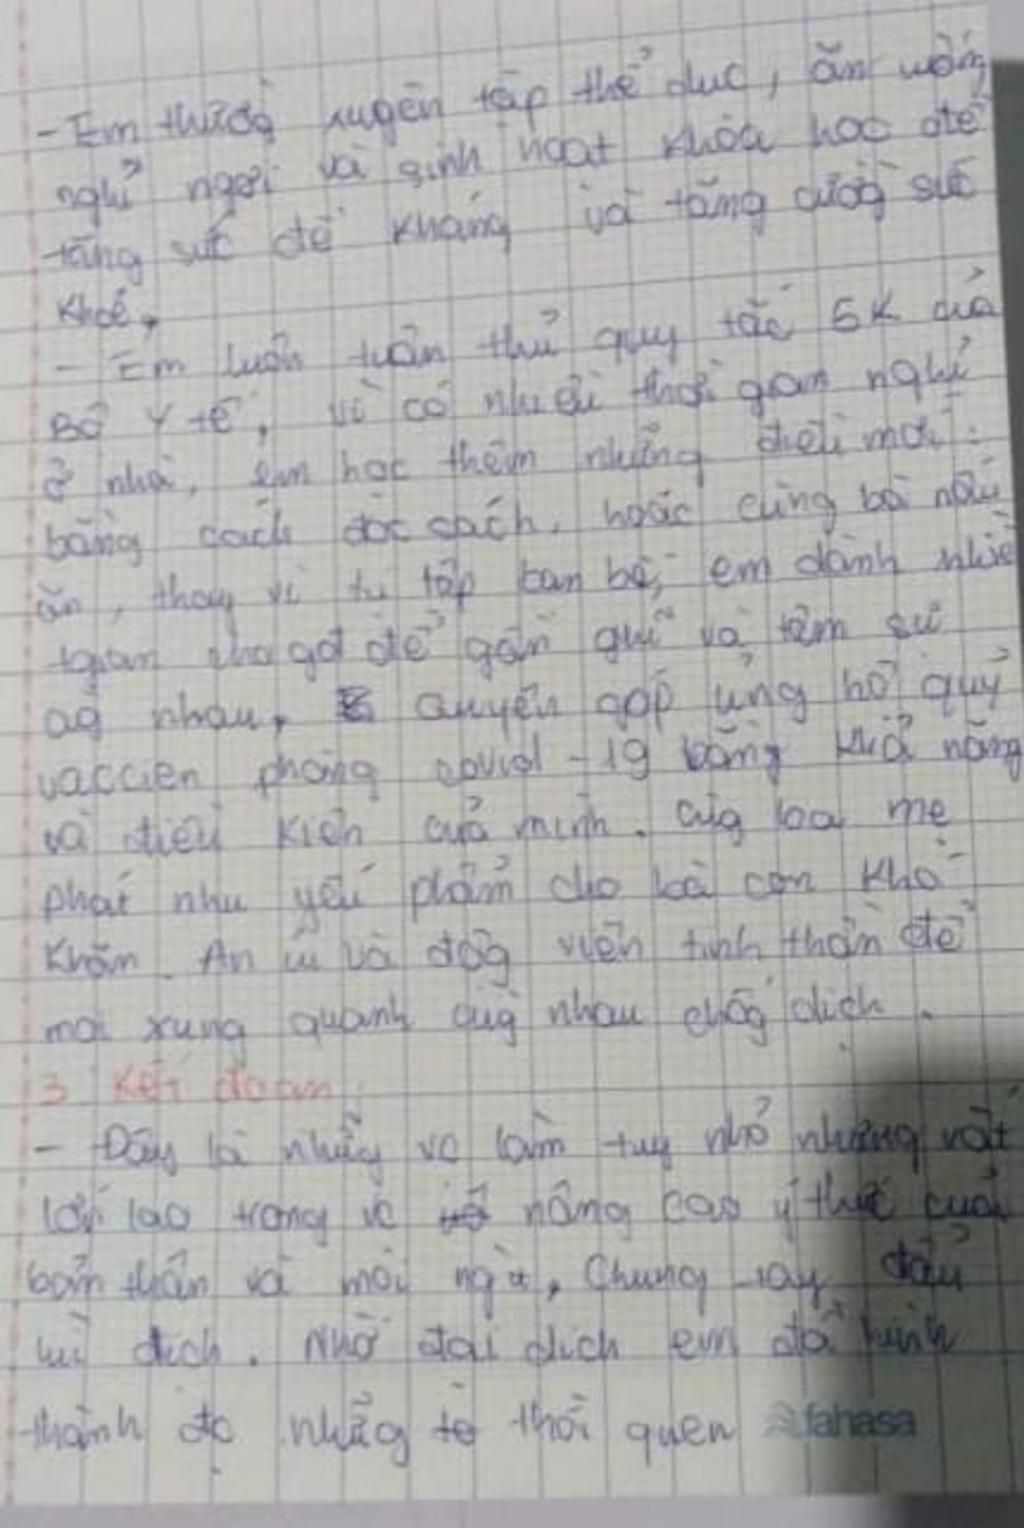 - Em thường xuyên tập thể dục, ăn uống
nghỉ ngơi và sinh hoạt khoa học để
tăng sức đề kháng và tăng cường sức
khoẻ.
- Em luôn tuân thủ quy tắc 5K của
Bộ Y tế, vì có nhiều thời gian nghỉ
ở nhà, em học thêm những điều mới
bằng cách đọc sách, hoặc cùng bà nấu
ăn, thay vì tụ tập bạn bè, em dành nhiều
tgian cho gđ để gần gũi và tâm sự
nhau, quyên góp ủng hộ quỹ
vaccien phòng covid - 19 bằng khả năng
và điều kiện của mình. cùg ba mẹ
phát nhu yếu phẩm cho bà con khó
khăn. An ủi và độg viên tinh thần để
mọi xung quanh cùg nhau chốg dịch.
3 Kết đoạn
- Đây là nhữg vc làm tuy nhỏ nhưng rất
lớn lao trong vc nâng cao ý thức của
bản thân và mọi ng, Chung tay đẩy
lùi dịch. Nhờ đại dịch em đã hình
thành đc nhữg thói quen
fahasa